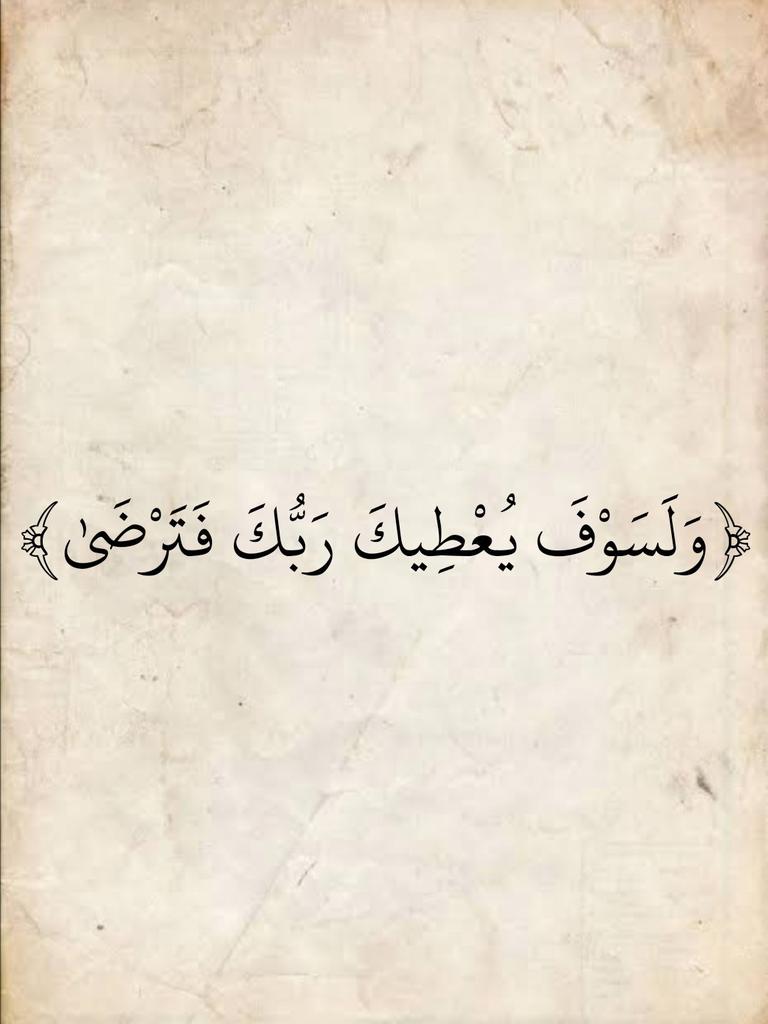 ﴿ وَلَسَوْفَ يُعْطِيكَ رَبُّكَ فَتَرْضَىٰ ﴾